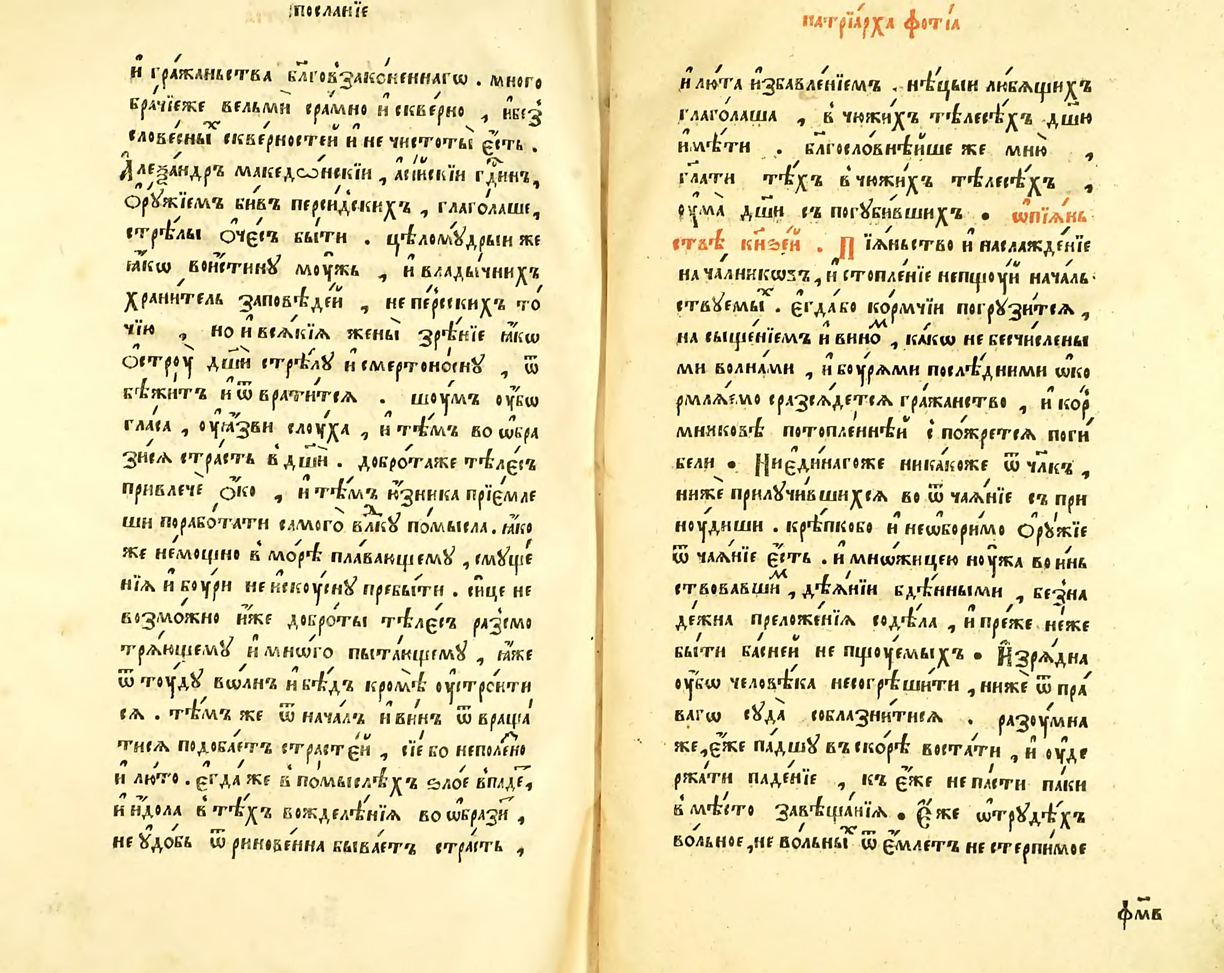 посланїе
и҆ гра́жаньства бл҃гов̾зако́неннагѡ . много
бра́чїеже вельмѝ сра́мно и҆ скве́рно , и҆без̾
слове́сныⷯ скве́рностей и҆ не чистоты̀ є҆́сть .
А҆леѯа́ндръ македѡ́нскїи , а҆сі́искїи гдⷭ҇инъ ,
Ѻ҆рꙋ́жїемъ бивъ перси́дскихъ , глаго́лаше ,
стрѣ́лы ѻ҆че́съ бы́ти . цѣломꙋ́дрыи же
ꙗ҆́кѡ вои́стинꙋ моу́жь , и҆ влады́чнихъ
храни́тель за́повѣдей , не пе́рсскихъ то́
чїю , но и҆ вся́кїѧ жены̀ зрѣ́нїе ꙗ҆́кѡ
Ѻ҆строу̀ дш҃и́ стрѣлꙋ̀ и҆ смертоно́снꙋ , ѿ
бѣжи́тъ и҆ ѿ врати́тсѧ . шоу́мъ оу҆́бѡ
гла́са , оу҆ꙗ҆́зви слоу́ха , и҆ тѣ́мъ во ѡ҆бра
зи́сѧ стра́сть в̾ дш҃и́ . добро́таже тѣле́съ
привлечѐ ѻ҆́ко , и҆ тѣ́мъ ю҆́зника прїе́мле
ши порабо́тати самого̀ влⷣкꙋ по́мысла . ꙗ҆́ко
же не́мощно в̾ мо́рѣ пла́вающемꙋ , смꙋще
нїѧ и҆ боу́ри не и҆скоу́снꙋ пребы́ти . си́це не
возмо́жно и҆́же добро́ты тѣле́съ разсмо
тря́ющемꙋ и҆ мно́го пыта́ющемꙋ , ꙗ҆́же
ѿ тоу́дꙋ во́лнъ и҆ бѣ́дъ кромѣ̀ оу҆стро́ити
сѧ . тѣ́мъ же ѿ нача́лъ и҆ ви́нъ ѿ враща́
тисѧ подоба́етъ страсте́й , сїе́ бо непо́лено
и҆ лю́то . є҆гда́ же в̾ по́мыслѣхъ ѕло́е в̾паде́ ,
и҆ и҆́дола в̾ тѣ́хъ вожделѣ́нїѧ во ѡ҆брази̂ ,
не ᲂу҆до́бь ѿ ринове́нна быва́етъ стра́сть ,
патрїа́рха фо́тїа
и҆ лю́та и҆збавле́нїемъ . нѣ́цыи лю́бящихъ
глаго́лаша , в̾ чюжи́хъ тѣлесѣ́хъ дш҃ю
и҆мѣ́ти . бл҃гословнѣ́йше же мню̀ ,
гл҃ати тѣ́хъ в̾ чюжи́хъ тѣлесѣ́хъ ,
оу҆ма̀ дш҃и съ погꙋби́вшихъ . ѡ҆ пїѧ́нь
ствѣ кнѧзе́й . Пїѧ́ньство и҆ наслажде́нїе
нача́лникѡвъ , и҆ стопле́нїе непщоу́й нача́ль
ствꙋемыⷯ . є҆гда́бо ко́рмчїи погрꙋзи́тсѧ ,
на сыще́нїемъ и҆ вино́ⷨ , ка́кѡ не бесчи́слены
ми волна́ми , и҆ боу́рѧми послѣ́дними ѡ҆ко
рмлѧ́емо сразсѧ́детсѧ гражанство , и҆ кор
мникѡвѣ потопле́ннѣй с̾ по́жретсѧ поги́
бели . Ни є҆ди́нагоже ника́коже ѿ чл҃къ ,
нижѐ прилꙋчи́вшихсѧ во ѿ ча́ѧнїе съ при
ноу́диши . крѣ́пкобо и҆ неѡ҆бори́мо Ѻ҆рꙋ́жїе
ѿ ча́ѧнїе є҆́сть . и҆ мно́жицею ноу́жа во и҆нь
ствовавшиⷨ , дѣѧ́нїи бдѣ́нными , без̾на
де́жна преложе́нїѧ содѣ́ла , и҆ пре́же не́же
бы́ти ба́сней не пщоу́емыхъ . И҆зрѧ́дна
оу҆́бѡ человѣ́ка несогрѣши́ти , нижѐ ѿ пра́
вагѡ сꙋда̀ соблазни́тисѧ . разоу́мна
же , є҆́же па́дшꙋ въ ско́рѣ воста́ти , и҆ оу҆де
ржа́ти паде́нїе , къ є҆́же не па́сти па́ки
в̾ мѣ́сто завѣща́нїѧ . Є҆́же ѡ҆трꙋдѣ́хъ
во́льное , не во́льныⷯ ѿ є҆́млетъ не сте́рпимое
фм҃в